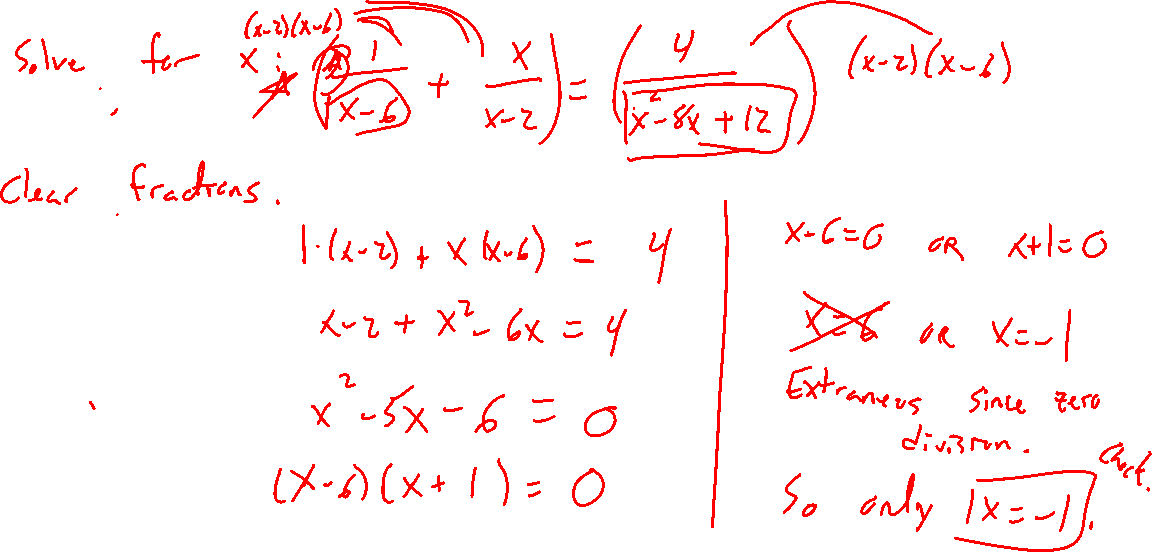 (x-2)(x-6)
Solve for x: (1/(x-6) + x/(x-2)) = (4/(x²-8x+12)) (x-2)(x-6)
Clear fractions.
1·(x-2) + x(x-6) = 4
x-2 + x² - 6x = 4
x² - 5x - 6 = 0
(x-6)(x+1) = 0
x-6=0 OR x+1=0
x=6 OR x=-1
Extraneous since zero
division.
So only x=-1.